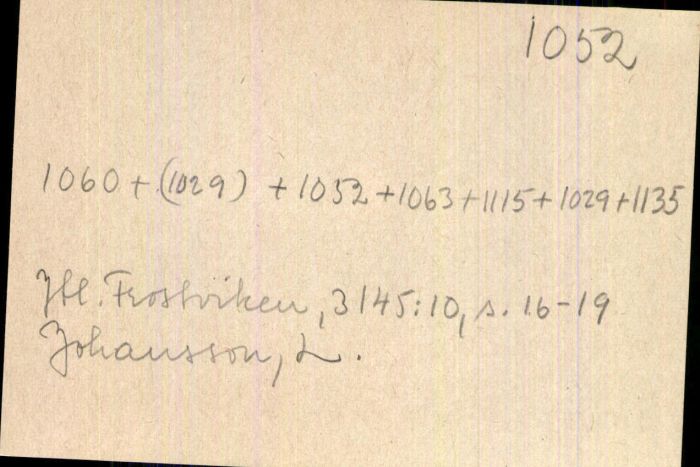 1052
1060 + (1029) + 1052 + 1063 + 1115 + 1029 + 1135
Jtl. Frostviken, 3145:10, s. 16-19
Johansson, L.